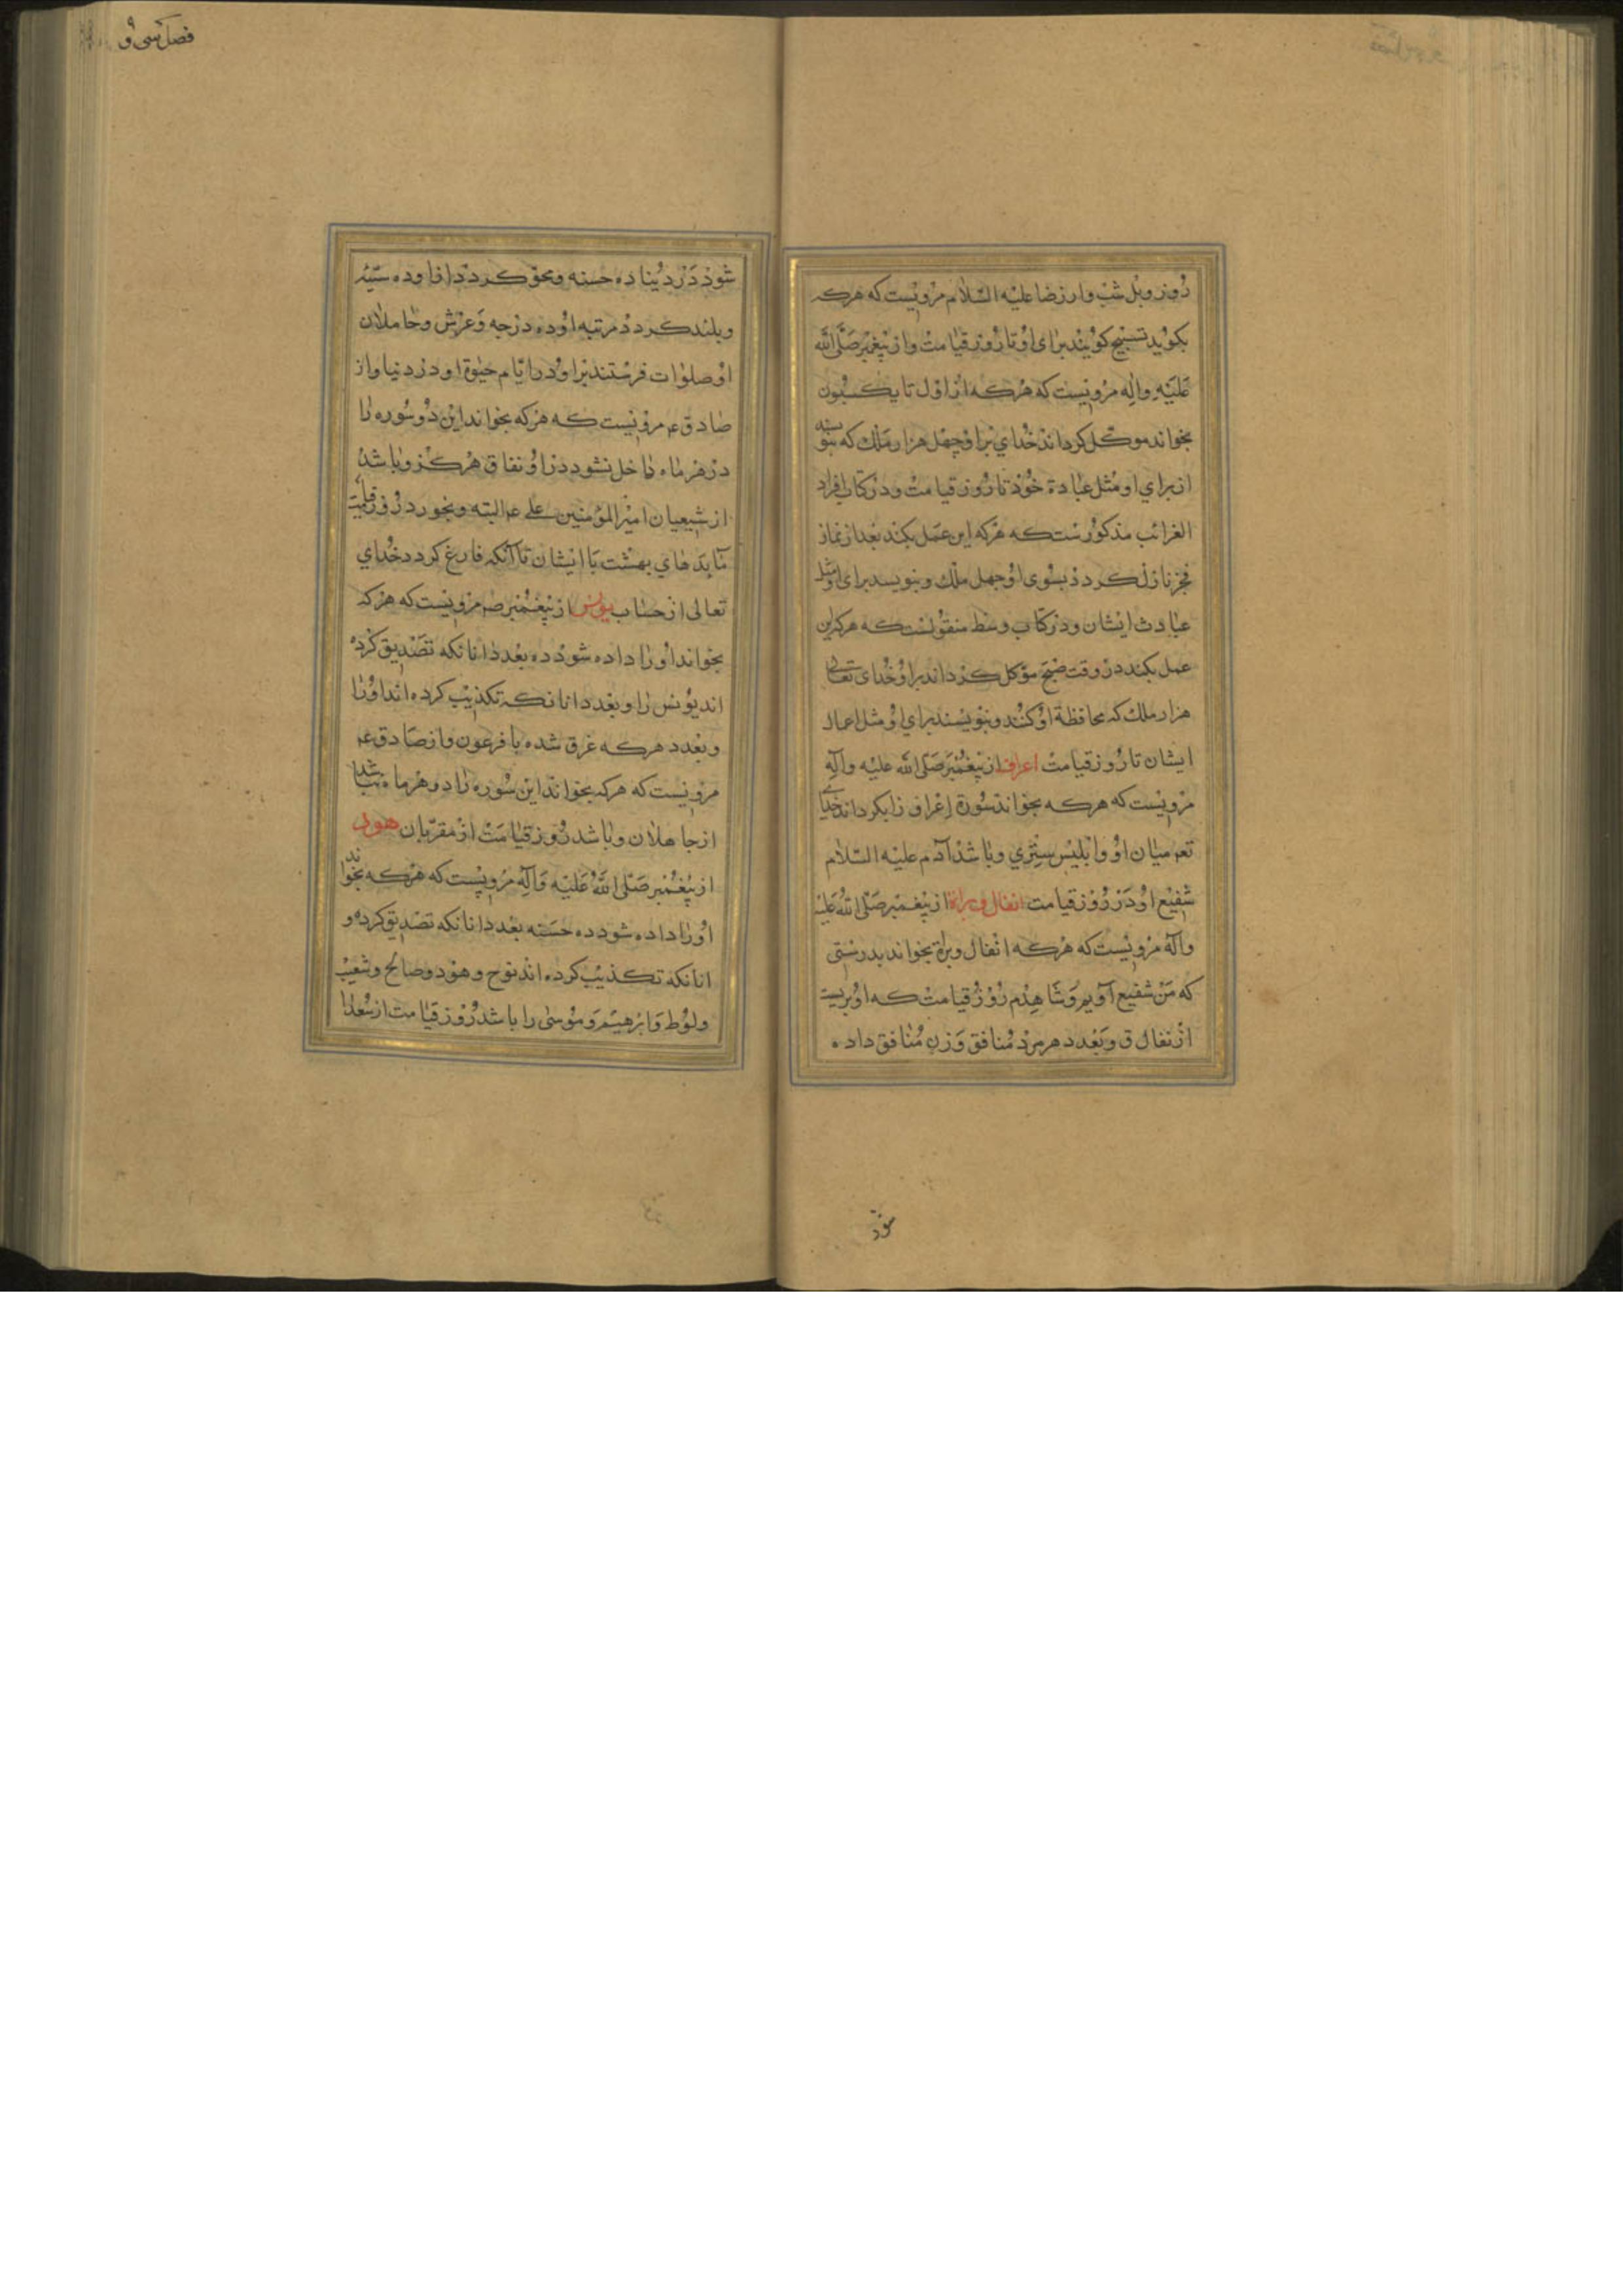 روز و بل شب و از رضا علیه السّلام مرویست که هرکه
بکوید تسبیح کویند برای او تا روز قیامت و از پیغمبر صَلَّی الله
عَلَیْهِ وَالِه مرویست که هرکه از اوّل تا یکسبون
بخواند موکّل کرداند خدای برا و چهل هزار ملک که بنویسند
از برای او مثل عبادة خود تا روز قیامت و در کتاب افراد
الغرائب مذکورست که هرکه این عمل بکند بعد از نماز
فجر نازل کردد بسوی او چهل ملک و بنویسد برای او مثل
عبادت ایشان و در کتاب وسط منقولست که هرکه این
عمل بکند در وقت صبح موکل کرداند برا و خدای تعالی
هزار ملک که محافظة او کنند و بنویسند برای او مثل اعمال
ایشان تا روز قیامت اعراف از پیغمبر صَلّی الله علیه وآلِه
مرویست که هرکه بخواند سورة اعراف را بکرداند خدای
تعم میان او و ابلیس ستری و باشد آدم علیه السّلام
شفیع او در روز قیامت انفال و براة از پیغمبر صَلّی الله عَلَیه
وآله مرویست که هرکه انفال و براة بخواند بدرستی
که من شفیع آویم و شاهدم روز قیامت که او بریست
از نفاق و بعدد هر مرد منافق و زن منافق داده
شود
فصل سی و
شود در دنیا ده حسنه و محو کردد از او ده سیّئه
و بلند کردد مرتبه او ده درجه و عرش و حاملان
او صلوات فرستند برا و در ایّام حیٰوة او در دنیا و از
صادق عم مرویست که هرکه بخواند این دو سوره را
در هر ماه داخل نشود در او نفاق هرکز و باشد
از شیعیان امیر المؤمنین علی عم البته و بخورد روز قیامت
مآبدهای بهشت با ایشان تا آنکه فارغ کردد خدای
تعالی از حساب یونس از پیغمبر صم مرویست که هرکه
بخواند او را داده شود ده بعدد انانکه تصدیق کرده
اند یونس را و بعدد انانکه تکذیب کرده اند او را
و بعدد هرکه غرق شده با فرعون و از صادق عم
مرویست که هرکه بخواند این سوره را در هر ماه نباشد
از جاهلان و باشد روز قیامت از مقرّبان هود
از پیغمبر صَلّی اللهُ عَلَیْه وَآلِه مرویست که هرکه بخواند
او را داده شود ده حسنه بعدد انانکه تصدیق کرده و
انانکه تکذیب کرده اند نوح و هود و صالح و شعیب
و لوط و ابرهیم و موسی را باشد روز قیامت از سُعدا